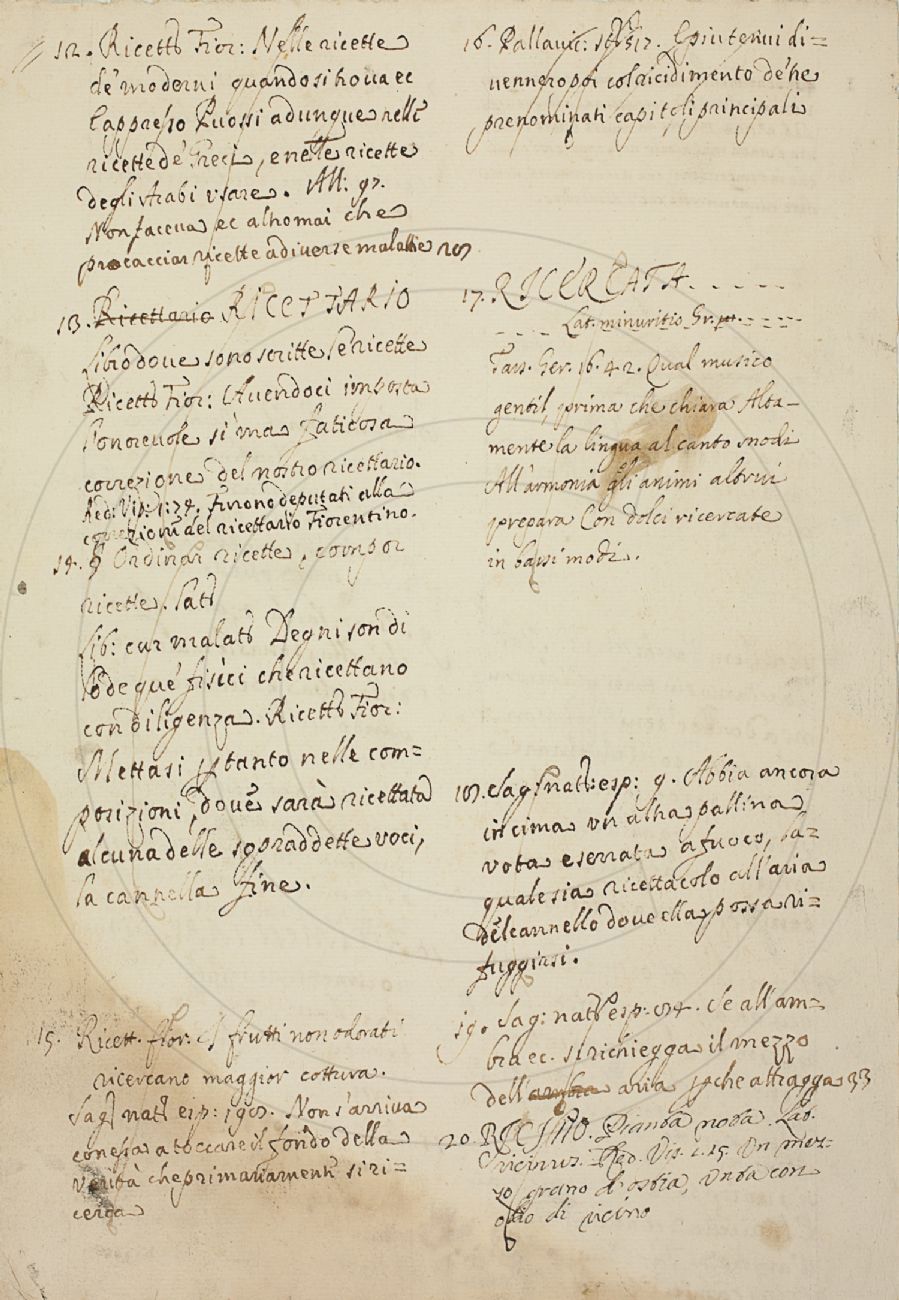 12. Ricett° Fior: Nelle ricette
de' moderni quando si trova ec
l'appresso Puossi adunque nelle
ricette de' Greci, e nelle ricette
degli Arabi usare. All: 97.
Non faceva ec alhomai che
procacciar ricette a diverse malattie
13. Ricettario RICETTARIO
Libro dove sono scritte le ricette
Ricett° Fior: Avendoci imposta
l'onorevole sì ma faticosa
correzione del nostro ricettario.
Red: Vip: 1: 74. Furono deputati alla
correzione del ricettario Fiorentino.
14. Ordinar ricette, compor
ricette. Lat°
Lib: cur malatt° Degni son di
lode que' fisici che ricettano
con diligenza. Ricett° Fior:
Mettasi tanto nelle com=
posizioni, dove sarà ricettata
alcuna delle sopraddette voci,
la cannella fine.
15. Ricett. fior. I frutti non odorati
ricercano maggior cottura.
Sag. nat. esp: Non s'arriva
con essa a toccare il fondo della
verità che primariamente si ri=
cerca
16. Pallavic: 517. E più tenui di=
vennero poi col ricidimento de' tre
prenominati capitoli principali
17. RICERCATA. - - - - -
- - - Lat. minuritio Gr. - - - -
Tass. Ger. 16. 42. Qual musico
gentil, prima che chiara Alta-
mente la lingua al canto snodi
All'armonia gli animi altrui
prepara Con dolci ricercate
in bassi modi.
18. Sag. nat. esp: 9. Abbia ancora
in cima un altra pallina
vota e serrata a fuoco, la=
quale sia ricettacolo all'aria
del cannello dove ella possa ri=
fuggirsi.
19. Sag: nat. esp. Se all'am=
bra ec. si richiegga il mezzo
dell'ambra aria che attragga 33
20. RICINO. Pianta nota. Lat.
ricinus. Red. Vis. 1. 15. Un mez=
zo grano d'ostia, unta con
olio di ricino